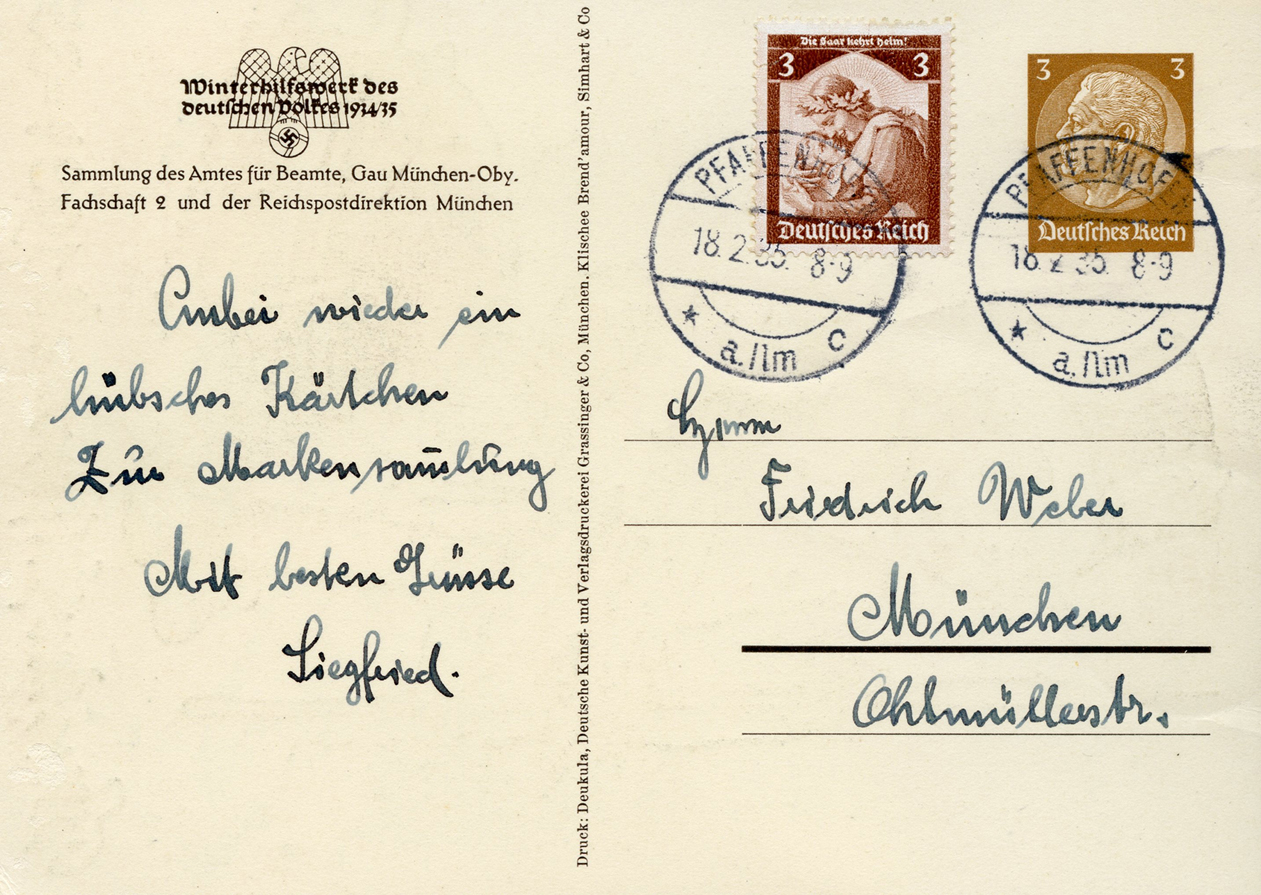 Winterhilfswerk des
deutschen Volkes 1934/35
Sammlung des Amtes für Beamte, Gau München-Oby.
Fachschaft 2 und der Reichspostdirektion München
Anbei wieder ein
hübsches Kärtchen
Zur Markensam̅lung
Mit besten Grüsse
Siegfried.
Druck: Deukula, Deutsche Kunst- und Verlagsdruckerei Grassinger & Co, München. Klischee Brend'amour, Simhart & Co
Die Saar kehrt heim!
3 3
Deutsches Reich
3 3
Deutsches Reich
PFAFFENHOFEN
18.2.35. 8-9
* a./Ilm c
PFAFFENHOFEN
18.2.35. 8-9
* a./Ilm c
Friedrich Weber
München
Ohlmüllerstr.